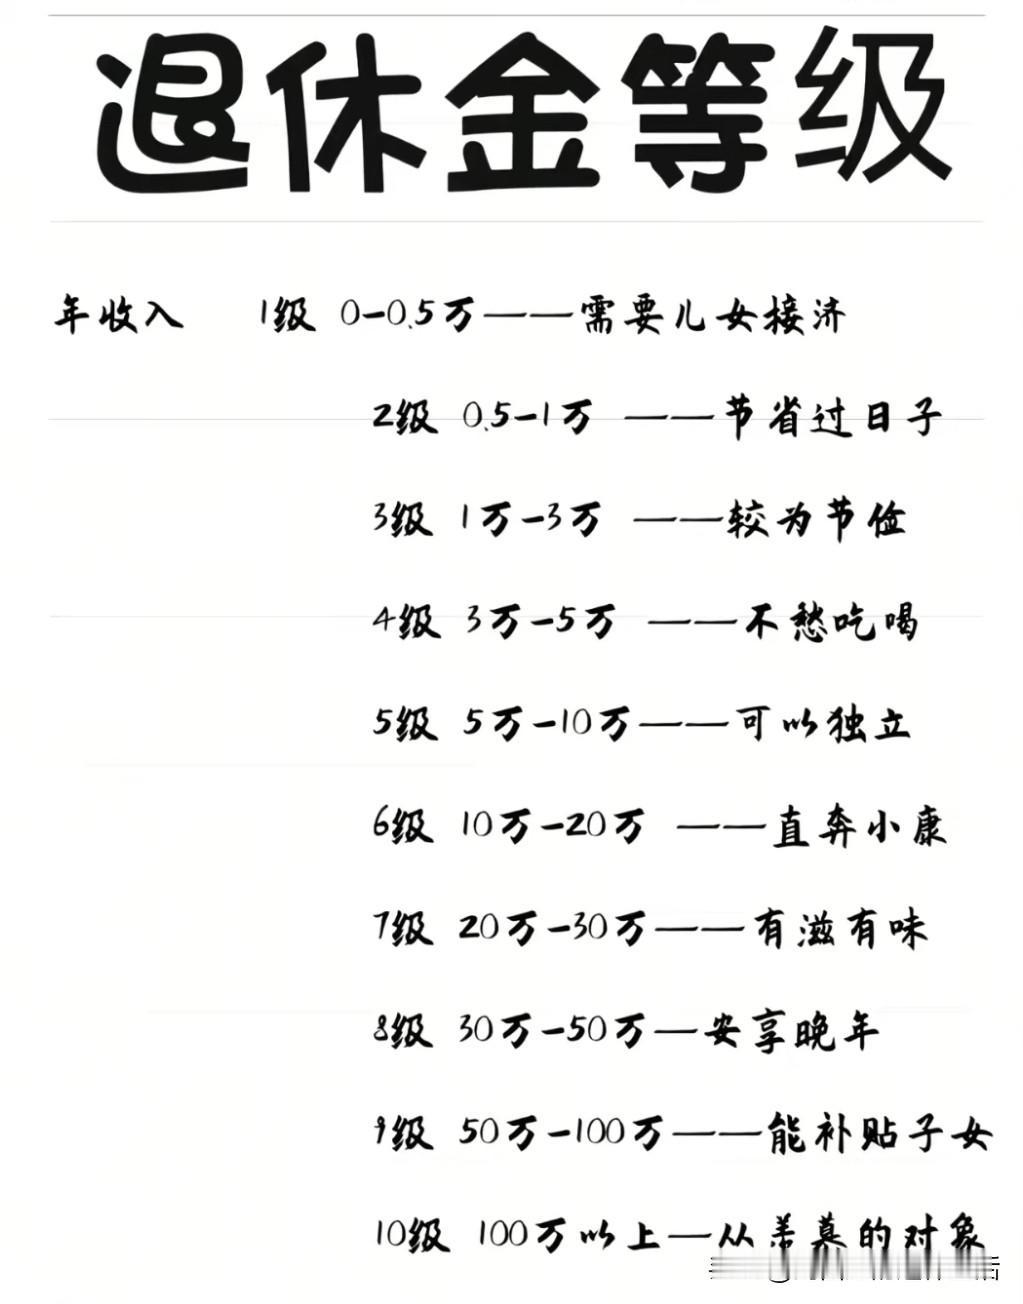 退休金等级
年收入 1级 0-0.5万——需要儿女接济
2级 0.5-1万 ——节省过日子
3级 1万-3万 ——较为节俭
4级 3万-5万 ——不愁吃喝
5级 5万-10万——可以独立
6级 10万-20万 ——直奔小康
7级 20万-30万——有滋有味
8级 30万-50万—安享晚年
9级 50万-100万——能补贴子女
10级 100万以上—从羡慕的对象